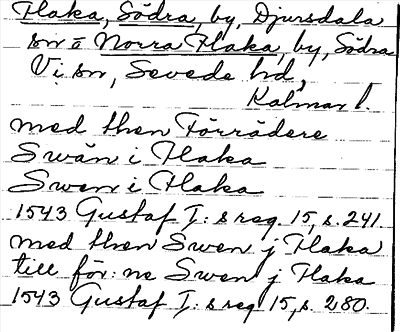 Flaka, Södra, by, Djursdala
sn o Norra Flaka, by, Södra
Vi sn, Sevede hd,
Kalmar l.
med then Förrädere
Swän i Flaka
Swen i Flaka
1543 Gustaf I: s reg. 15, s. 241.
med then Swen j Flaka
till för: ne Swen j Flaka
1543 Gustaf I: s reg 15, s. 280.